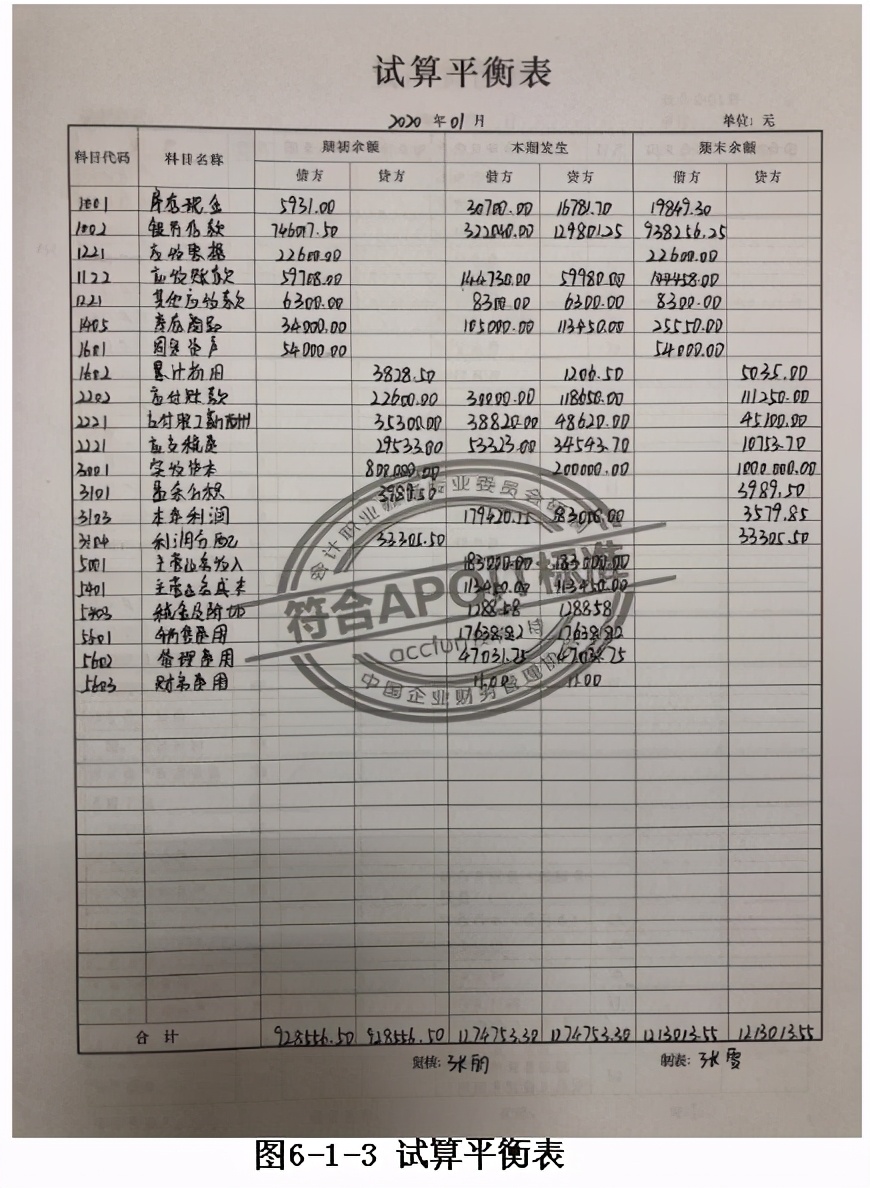 试算平衡表
2020 年 01 月 单位: 元
科目代码 科目名称 期初余额 本期发生 期末余额
借方 贷方 借方 贷方 借方 贷方
1001 库存现金 5931.00 30700.00 16781.70 19849.30
1002 银行存款 746017.50 322040.00 129801.25 938256.25
1221 应收票据 22600.00 22600.00
1122 应收账款 59708.00 144730.00 59980.00 144458.00
1221 其他应收款 6300.00 8300.00 6300.00 8300.00
1405 库存商品 34000.00 105000.00 113450.00 25550.00
1601 固定资产 54000.00 54000.00
1602 累计折旧 3828.50 1206.50 5035.00
2202 应付账款 22600.00 30000.00 118650.00 111250.00
2221 应付职工薪酬 35300.00 38820.00 48620.00 45100.00
2221 应交税费 29533.00 53323.00 34543.70 10753.70
3001 实收资本 800000.00 200000.00 1000000.00
3101 盈余公积 3989.50 3989.50
3103 本年利润 179420.15 3579.85
3104 利润分配 33305.50 33305.50
5001 主营业务收入 183000.00 183000.00
5401 主营业务成本 113450.00 113450.00
5403 税金及附加 1288.58 1288.58
5601 销售费用 17638.82 17638.82
5602 管理费用 47031.75 47031.75
5603 财务费用 11.00 11.00
会计职业 专业委员会
符合APQIT标准
中国企业财务管理协会
合计 928556.50 928556.50 1274753.30 1274753.30 1213013.55 1213013.55
复核: 张丽 制表: 张雪
图6-1-3 试算平衡表